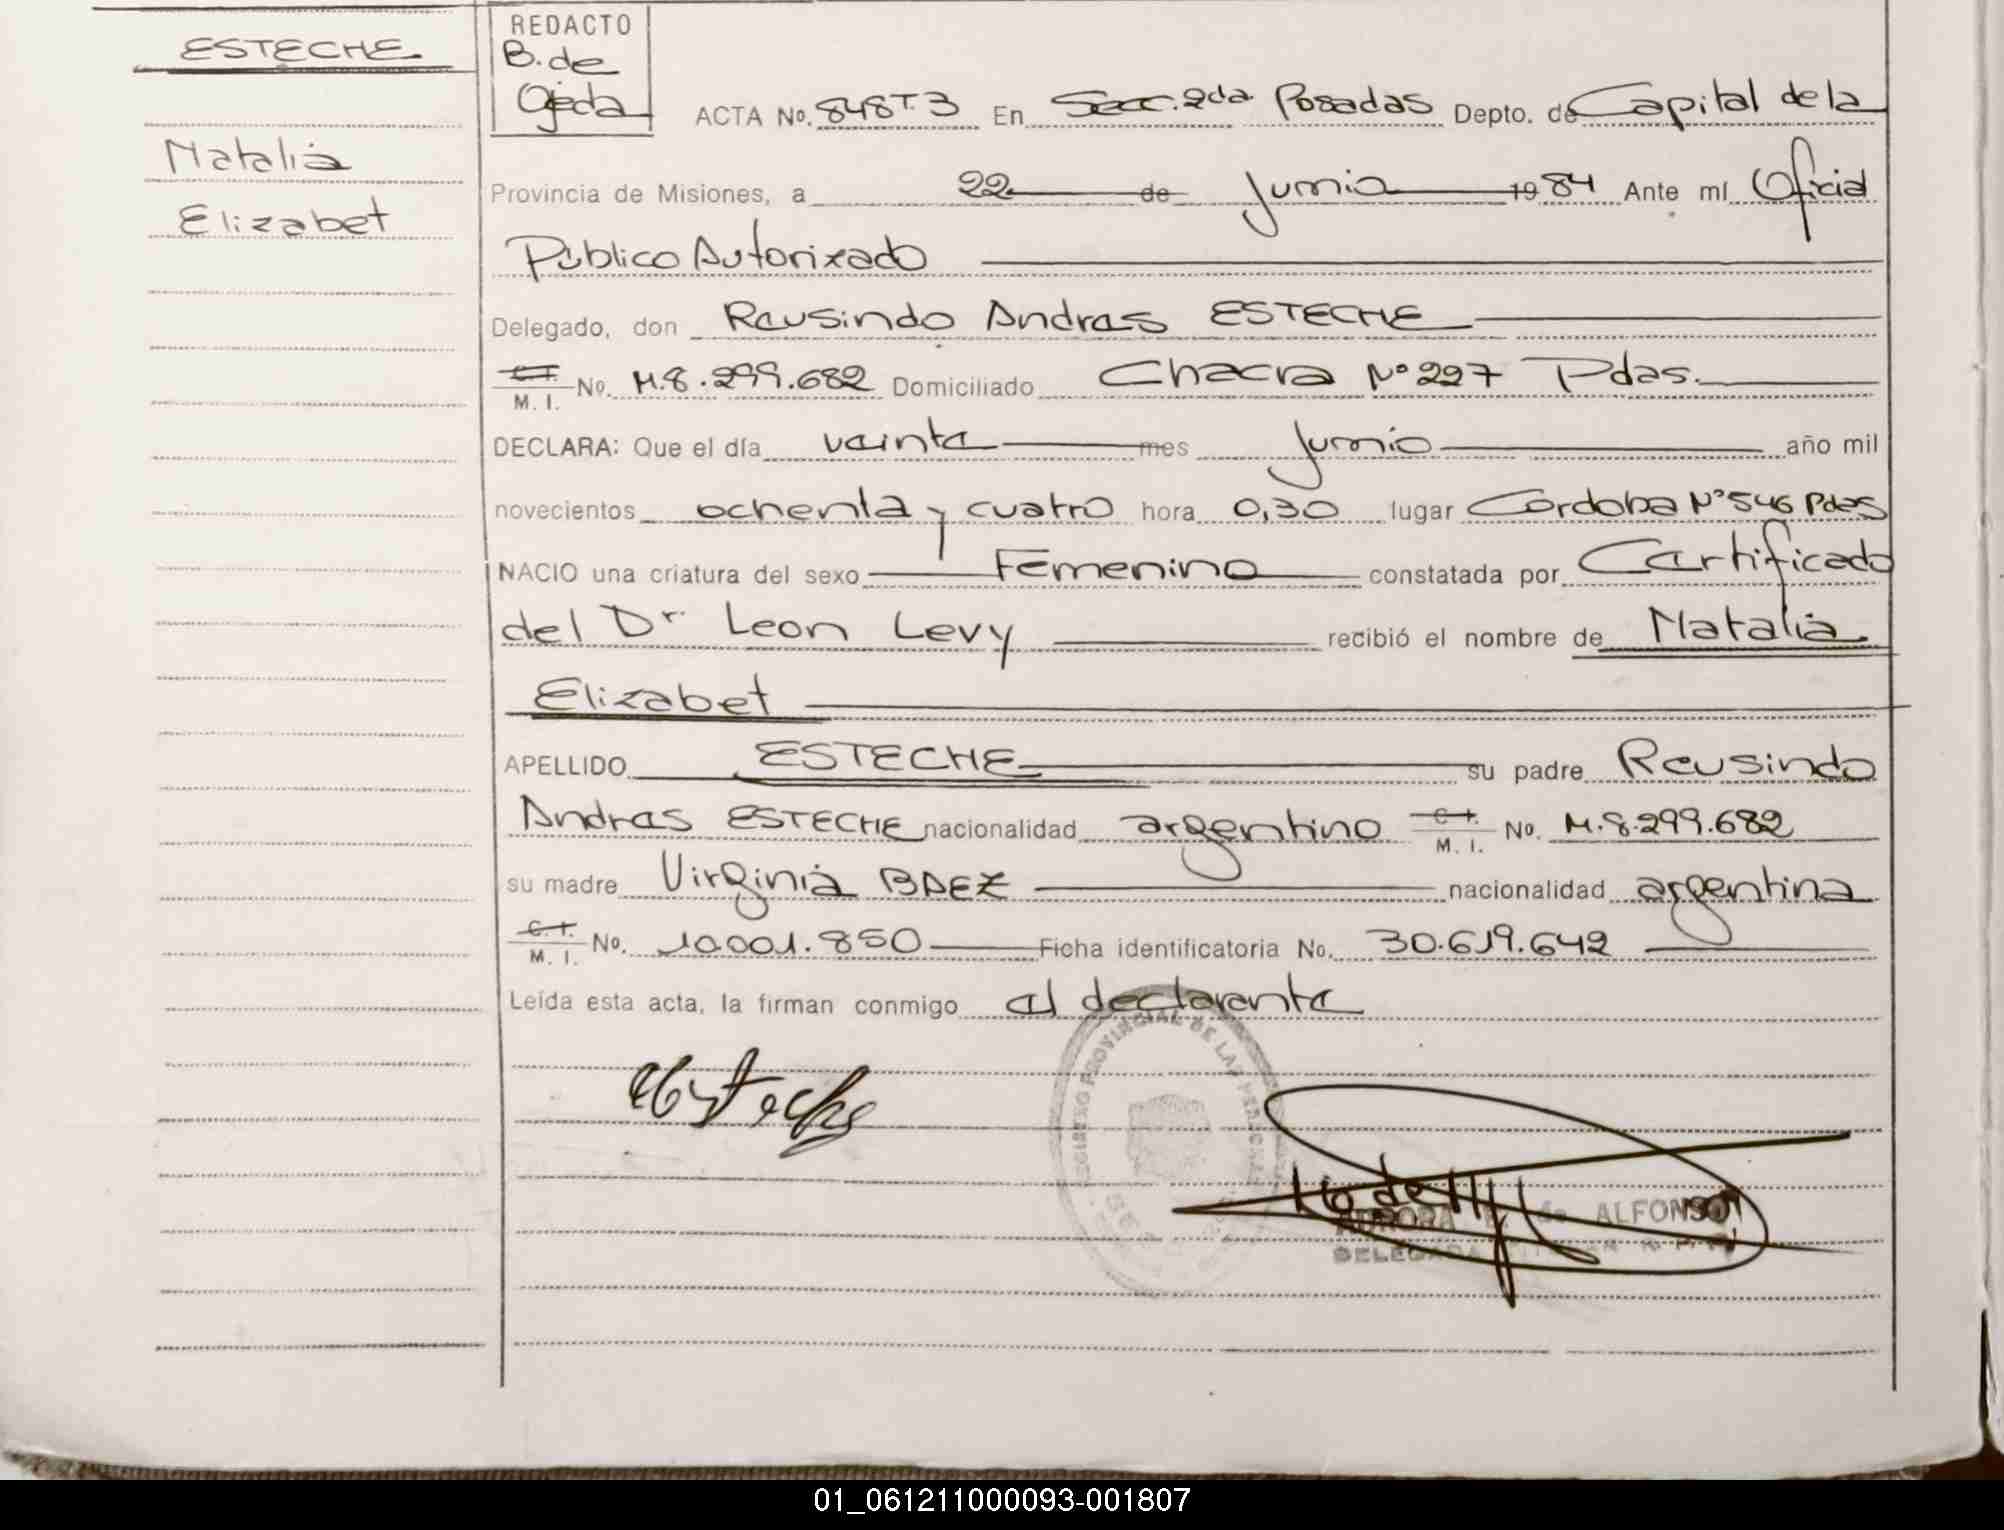 ESTECHE
Natalia
Elizabet
REDACTO
B. de
Ojeda
ACTA No. 848T.3 En Secc. 2da Posadas Depto. de Capital de la
Provincia de Misiones, a 22 de Junio 1984 Ante mI Oficial
Público Autorizado
Delegado, don Reusindo Andres ESTECHE
C.I. M.I. No. M.8.299.682 Domiciliado Chacra Nº 227 Pdas.
DECLARA: Que el día veinte mes Junio año mil
novecientos ochenta y cuatro hora 0,30 lugar Córdoba Nº 546 Pdas
NACIO una criatura del sexo Femenino constatada por Certificado
del Dr Leon Levy recibió el nombre de Natalia
Elizabet
APELLIDO ESTECHE su padre Reusindo
Andres ESTECHE nacionalidad argentino C.I. M.I. No. M.8.299.682
su madre Virginia BAEZ nacionalidad argentina
C.I. M.I. No. 10.001.850 Ficha identificatoria No. 30.619.642
Leída esta acta, la firman conmigo el declarante
Esteche
REGISTRO PROVINCIAL DE LAS PERSONAS
AURORA de ALFONSO
DELEGADA
01_061211000093-001807